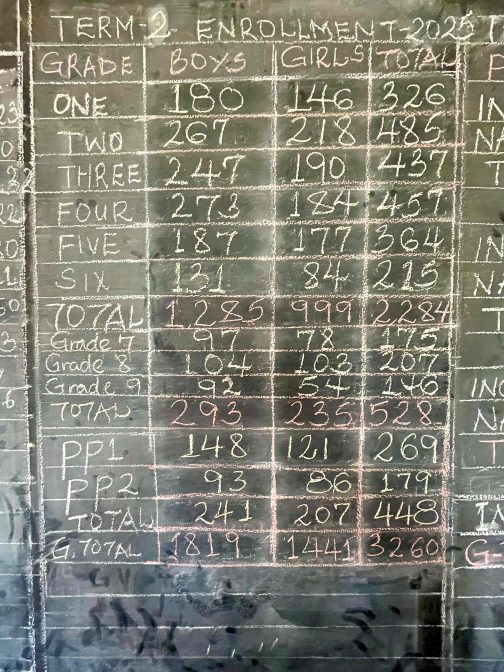 TERM-2 ENROLLMENT-2025
GRADE BOYS GIRLS TOTAL
ONE 180 146 326
TWO 267 218 485
THREE 247 190 437
FOUR 273 184 457
FIVE 187 177 364
SIX 131 84 215
TOTAL 1,285 999 2284
Grade 7 97 78 175
Grade 8 104 103 207
Grade 9 92 54 146
TOTAL 293 235 528
PP1 148 121 269
PP2 93 86 179
TOTAL 241 207 448
G.TOTAL 1819 1441 3260